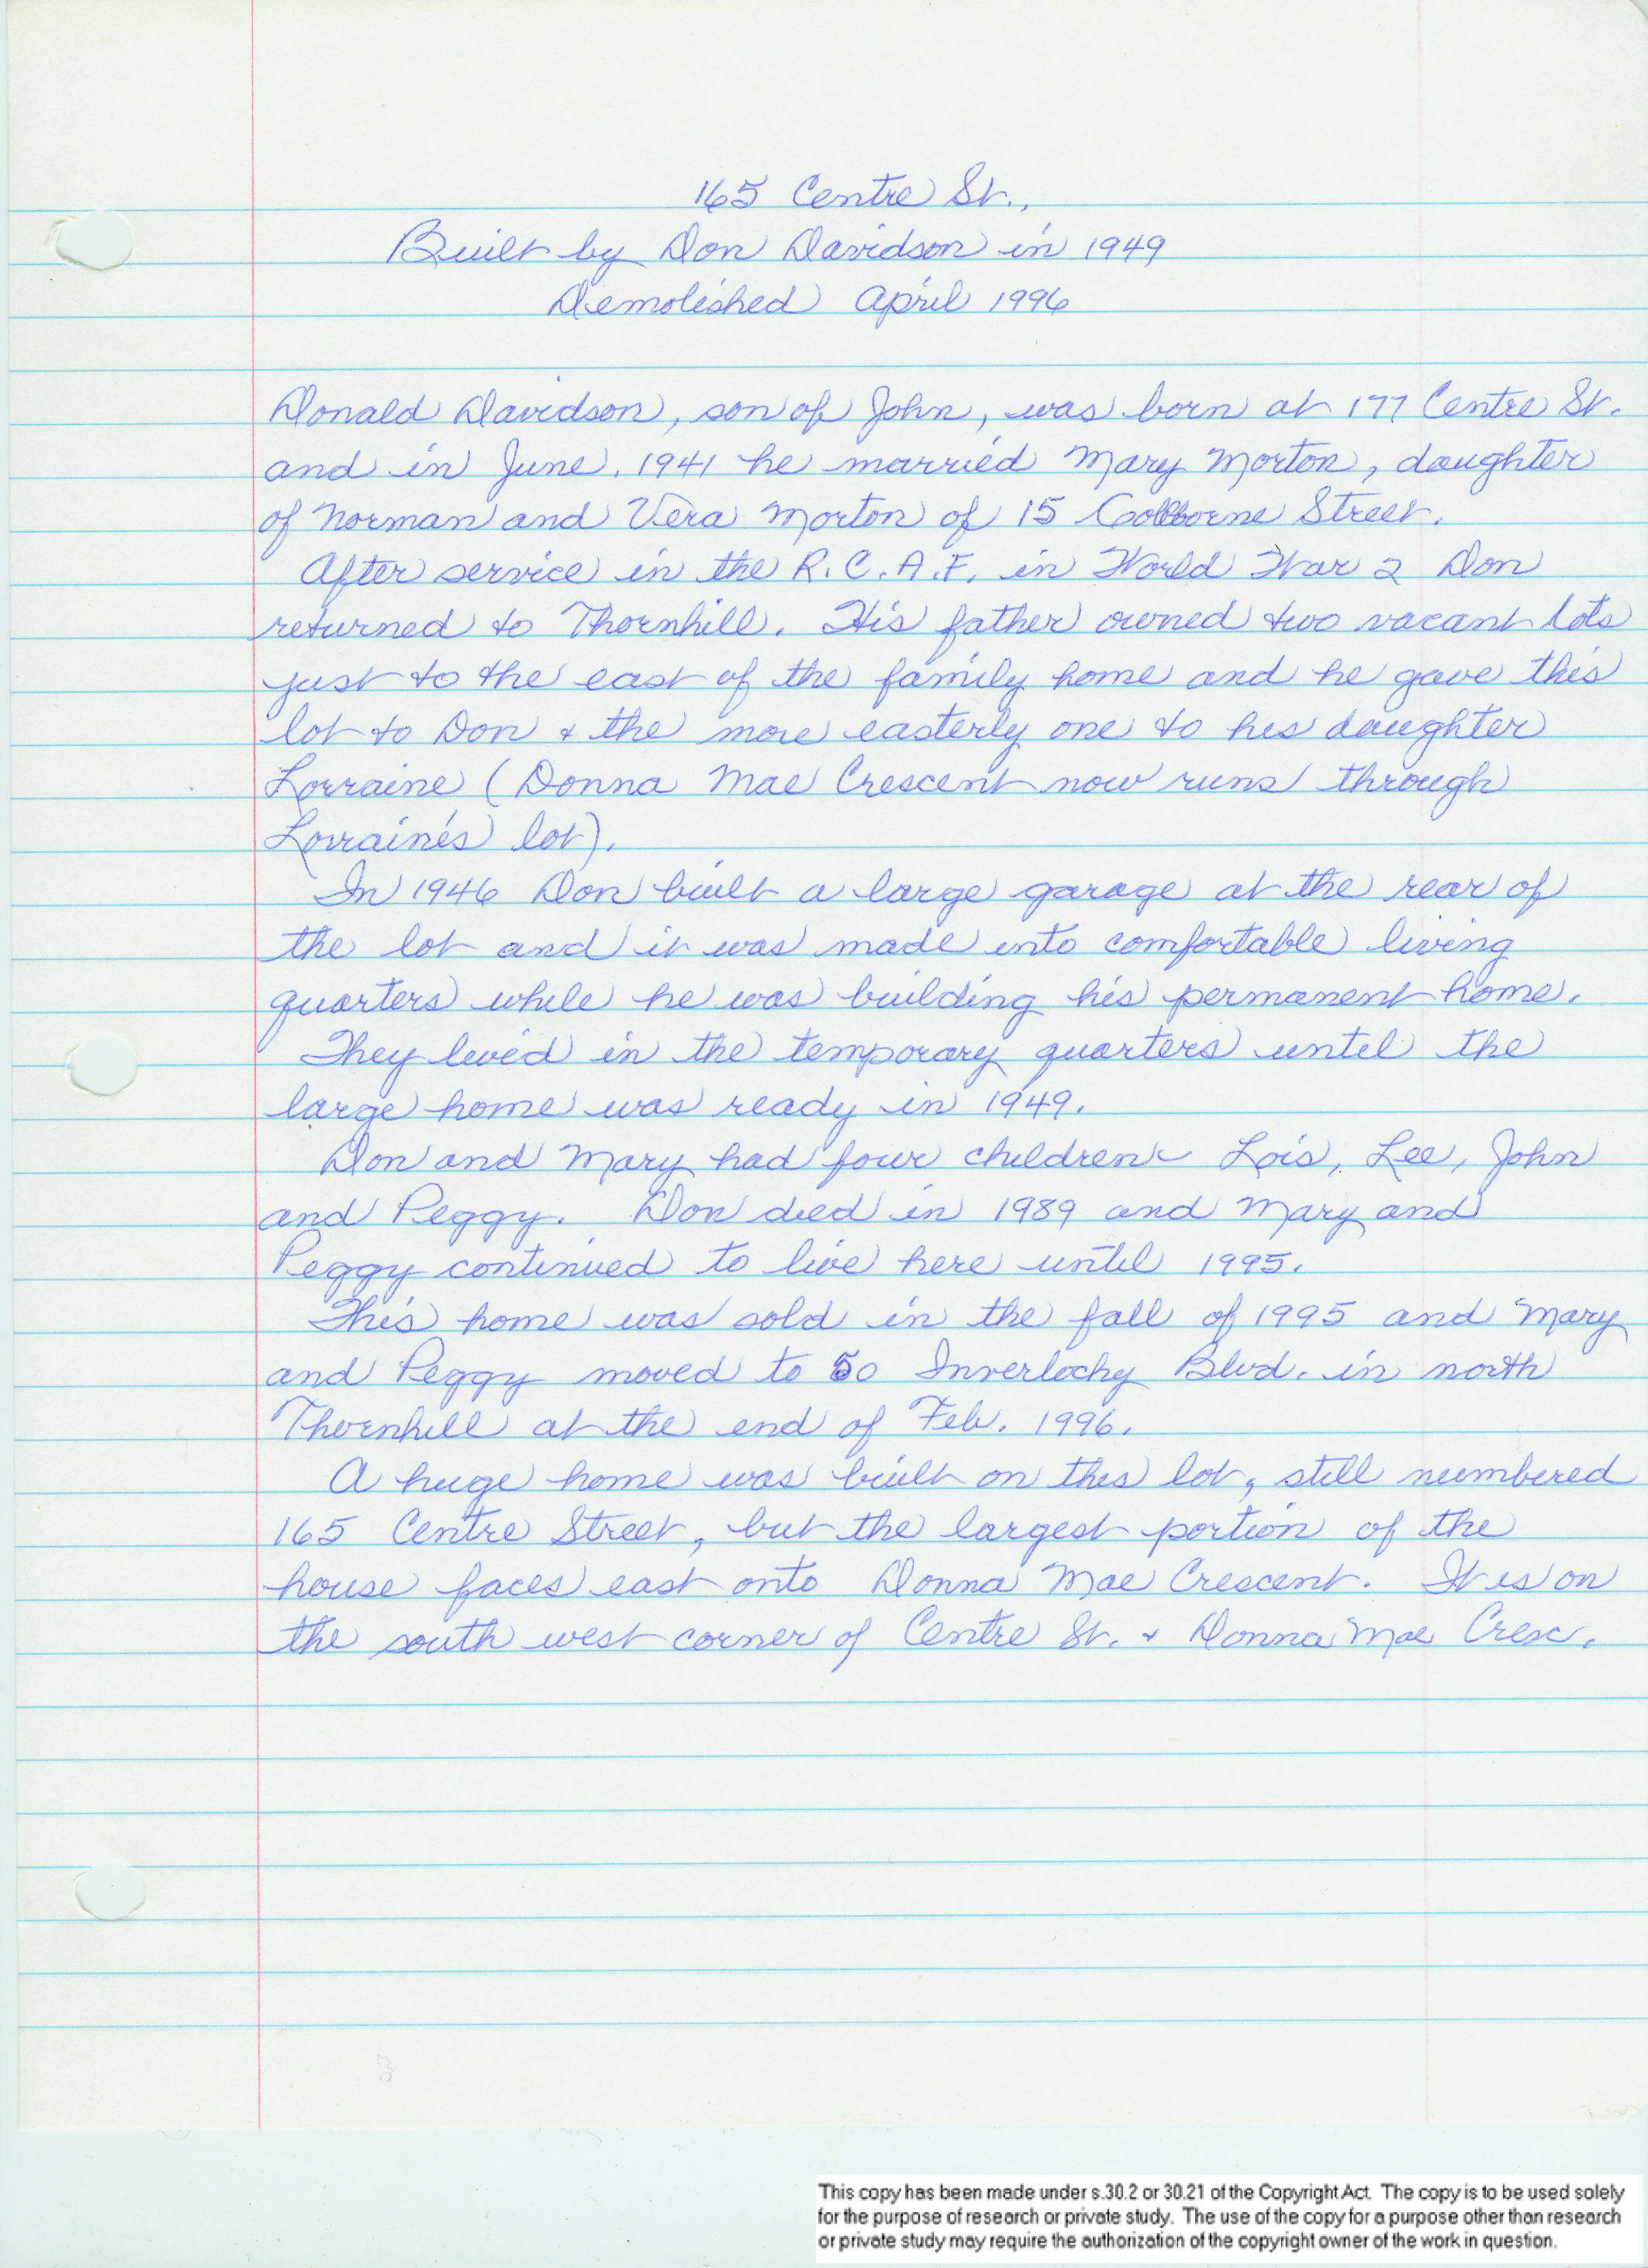 165 Centre St.,
Built by Don Davidson in 1949
Demolished April 1996
Donald Davidson, son of John, was born at 177 Centre St.
and in June, 1941 he married Mary Morton, daughter
of Norman and Vera Morton of 15 Colborne Street.
After service in the R.C.A.F. in World War 2 Don
returned to Thornhill. His father owned two vacant lots
just to the east of the family home and he gave this
lot to Don & the more easterly one to his daughter
Lorraine (Donna Mae Crescent now runs through
Lorraine's lot).
In 1946 Don built a large garage at the rear of
the lot and it was made into comfortable living
quarters while he was building his permanent home.
They lived in the temporary quarters until the
large home was ready in 1949.
Don and Mary had four children - Lois, Lee, John
and Peggy. Don died in 1989 and Mary and
Peggy continued to live here until 1995.
This home was sold in the fall of 1995 and Mary
and Peggy moved to 50 Inverlochy Blvd. in north
Thornhill at the end of Feb. 1996.
A huge home was built on this lot, still numbered
165 Centre Street, but the largest portion of the
house faces east onto Donna Mae Crescent. It is on
the south west corner of Centre St. & Donna Mae Cresc.
This copy has been made under s.30.2 or 30.21 of the Copyright Act. The copy is to be used solely
for the purpose of research or private study. The use of the copy for a purpose other than research
or private study may require the authorization of the copyright owner of the work in question.